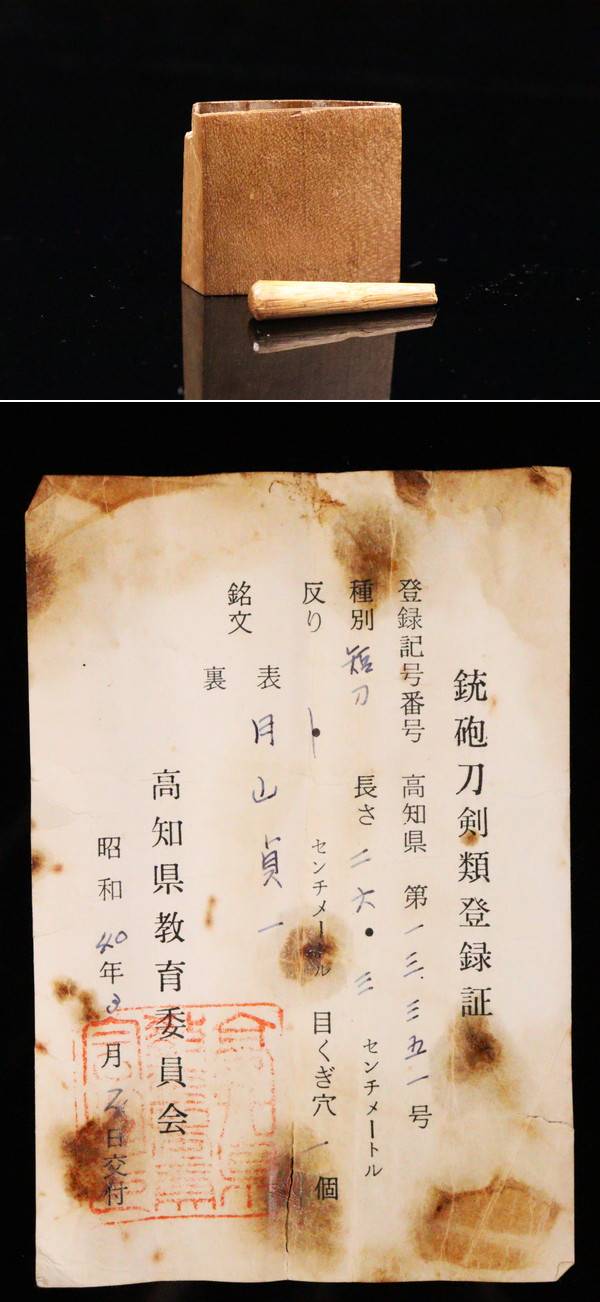 銃砲刀剣類登録証
登録記号番号 高知県 第一三三五一号
種別 短刀 長さ 二六・三 センチメートル
反り ・ センチメートル 目くぎ穴 一 個
銘文 表 月山貞一
裏
高知県教育委員会
昭和 40年 3月 日交付